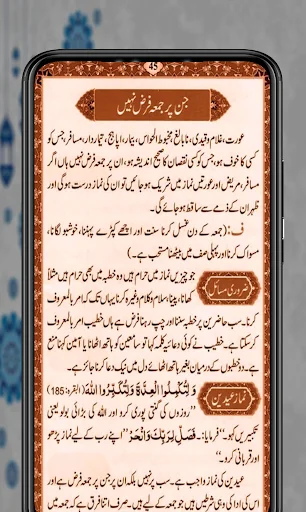 45
جن پر جمعہ فرض نہیں
عورت، غلام و قیدی، نابالغ مخبوط الحواس، بیمار، اپاہج، تیماردار، مسافر، جس کو
کسی کا خوف ہو، جس کو کسی نقصان کا صحیح اندیشہ ہو، ان پر جمعہ فرض نہیں ہاں اگر
مسافر، مریض اور عورتیں نماز میں شریک ہو جائیں تو ان کی نماز درست ہوگی اور
ظہر ان کے ذمے سے ساقط ہو جائے گی۔
ف: (جمعہ کے دن غسل کرنا سنت اور اچھے کپڑے پہننا، خوشبو لگانا،
مسواک کرنا اور پہلی صف میں بیٹھنا مستحب ہے۔)
ضروری مسائل
جو چیزیں نماز میں حرام ہیں وہ خطبہ میں بھی حرام ہیں مثلاً
کھانا، پینا، سلام و کلام وغیرہ کرنا یہاں تک کہ امر بالمعروف
کرنا۔ سب حاضرین پر خطبہ سننا اور چپ رہنا فرض ہے ہاں خطیب امر بالمعروف
کر سکتا ہے۔ خطیب نے کوئی دعائیہ کلمہ کہا تو سامعین کو ہاتھ اٹھانا یا آمین کہنا منع
ہے۔ دو خطبوں کے درمیان بغیر ہاتھ اٹھائے دل میں نیک دعا کرنا جائز ہے۔
نماز عیدین
وَلِتُكْمِلُوا الْعِدَّةَ وَلِتُكَبِّرُوا اللّٰهَ (البقرہ:185)
”روزوں کی گنتی پوری کرو اور اللہ کی بڑائی بولو یعنی
تکبیریں کہو۔“ فرمایا: ۔ فَصَلِّ لِرَبِّكَ وَانْحَرْ ”اپنے رب کے لیے نماز پڑھو
اور قربانی کرو۔“
عیدین کی نماز واجب ہے۔ سب پر نہیں بلکہ ان پر جن پر جمعہ فرض ہے اور
اس کی ادا کی وہی شرطیں ہیں جو جمعہ کے لیے ہیں۔ صرف اتنا فرق ہے کہ جمعہ میں